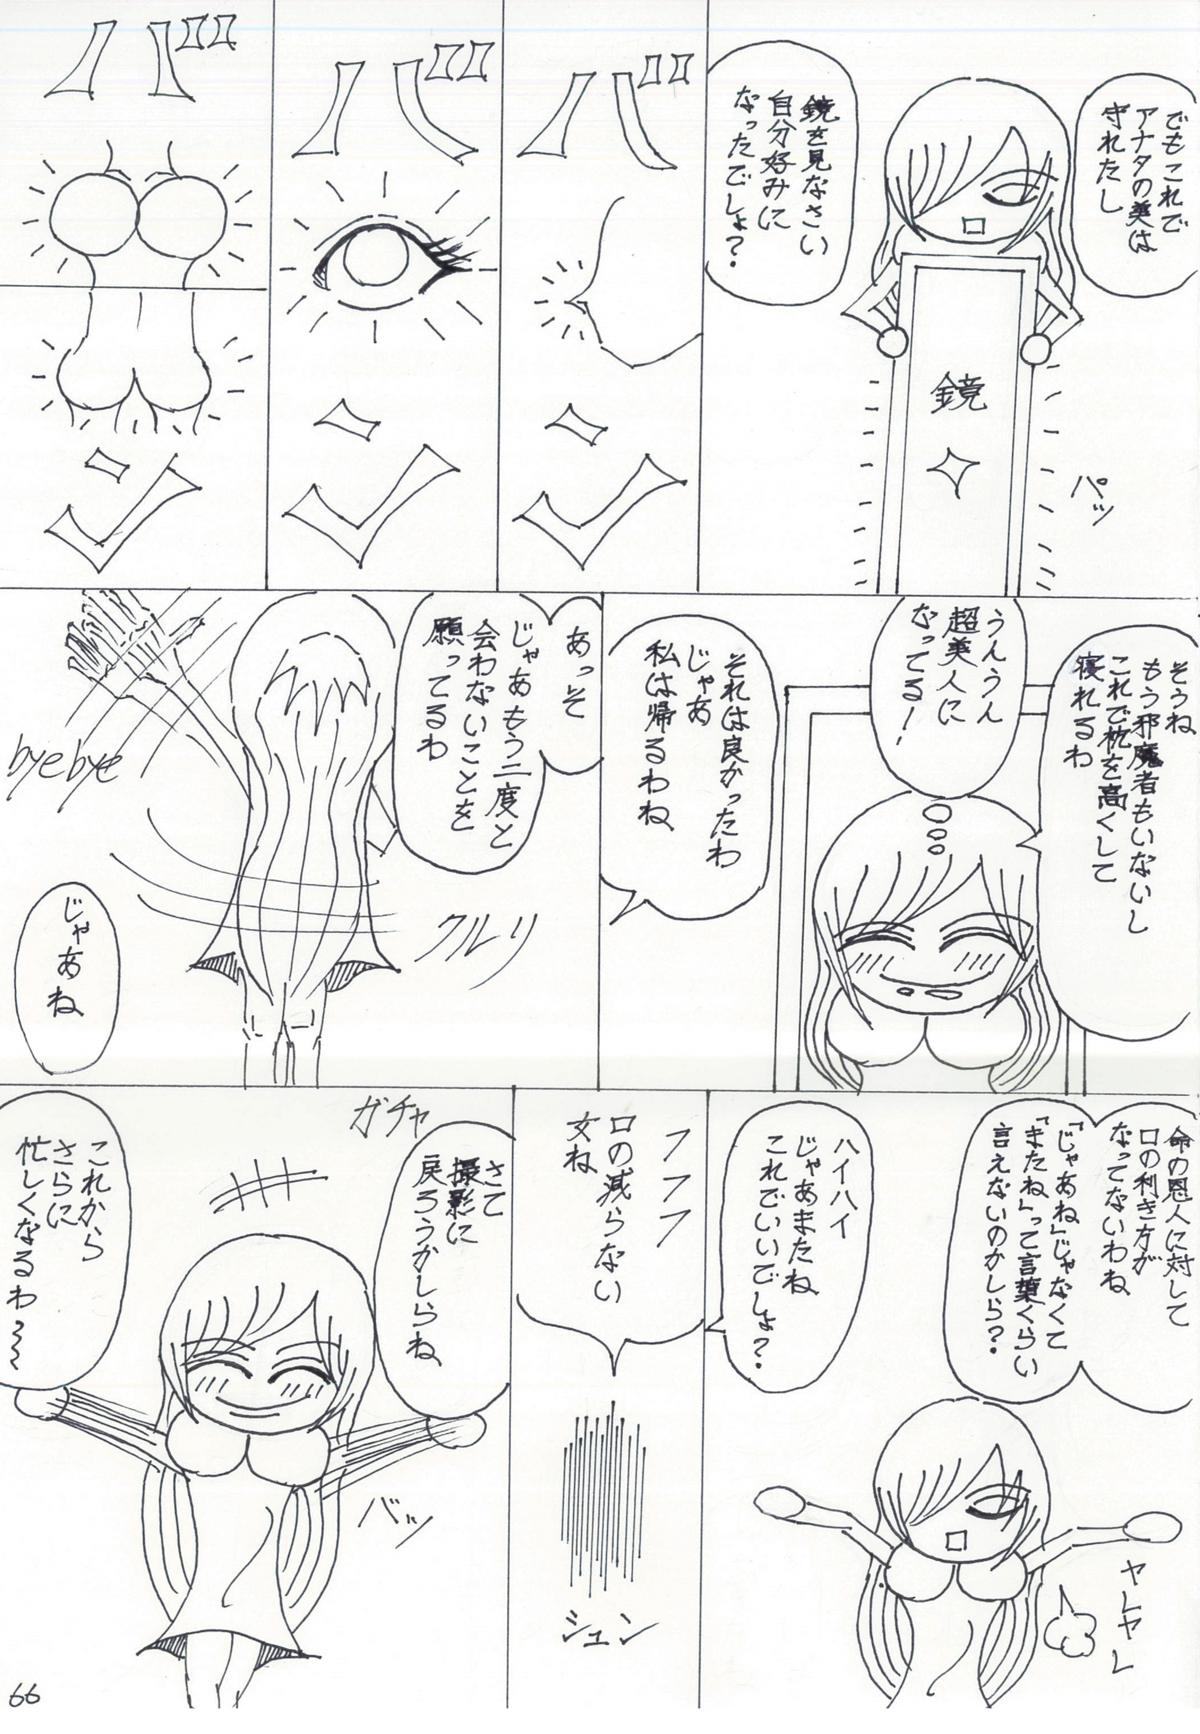 でもこれで
アナタの美は
守れたし
鏡を見なさい
自分好みに
なったでしょ？
鏡
パッ
バン
バン
バン
そうね
もう邪魔者もいないし
これで枕を高くして
寝れるわ
うんうん
超美人に
なってる！
それは良かったわ
じゃあ
私は帰るわね
あっそ
じゃあもう二度と
会わないことを
願ってるわ
クルリ
byebye
じゃあね
命の恩人に対して
口の利き方が
なってないわね
「じゃあね」じゃなくて
「またね」って言葉くらい
言えないのかしら？
ヤレヤレ
ハイハイ
じゃあまたね
これでいいでしょ？
フフフ
口の減らない
女ね
シュン
ガチャ
さて
撮影に
戻ろうかしらね
バッ
これから
さらに
忙しくなるわ〜〜
66